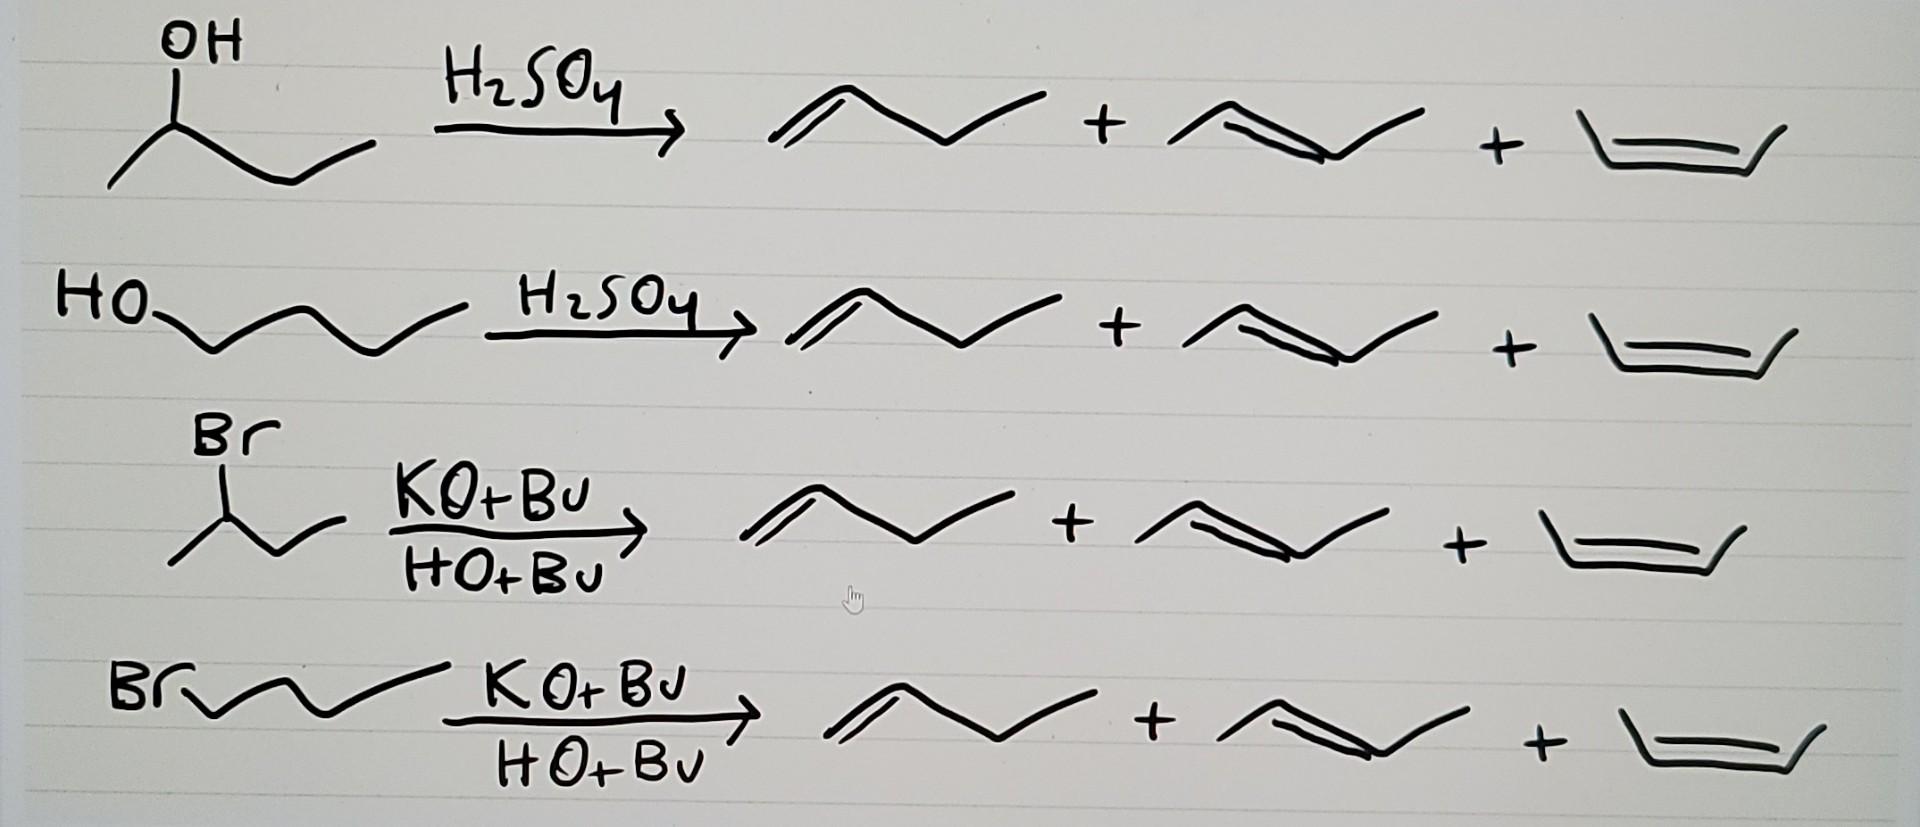 OH
H₂SO₄
+ +
HO
H₂SO₄
+ +
Br
KO+Bu
HO+Bu
+ +
Br
KO+Bu
HO+Bu
+ +